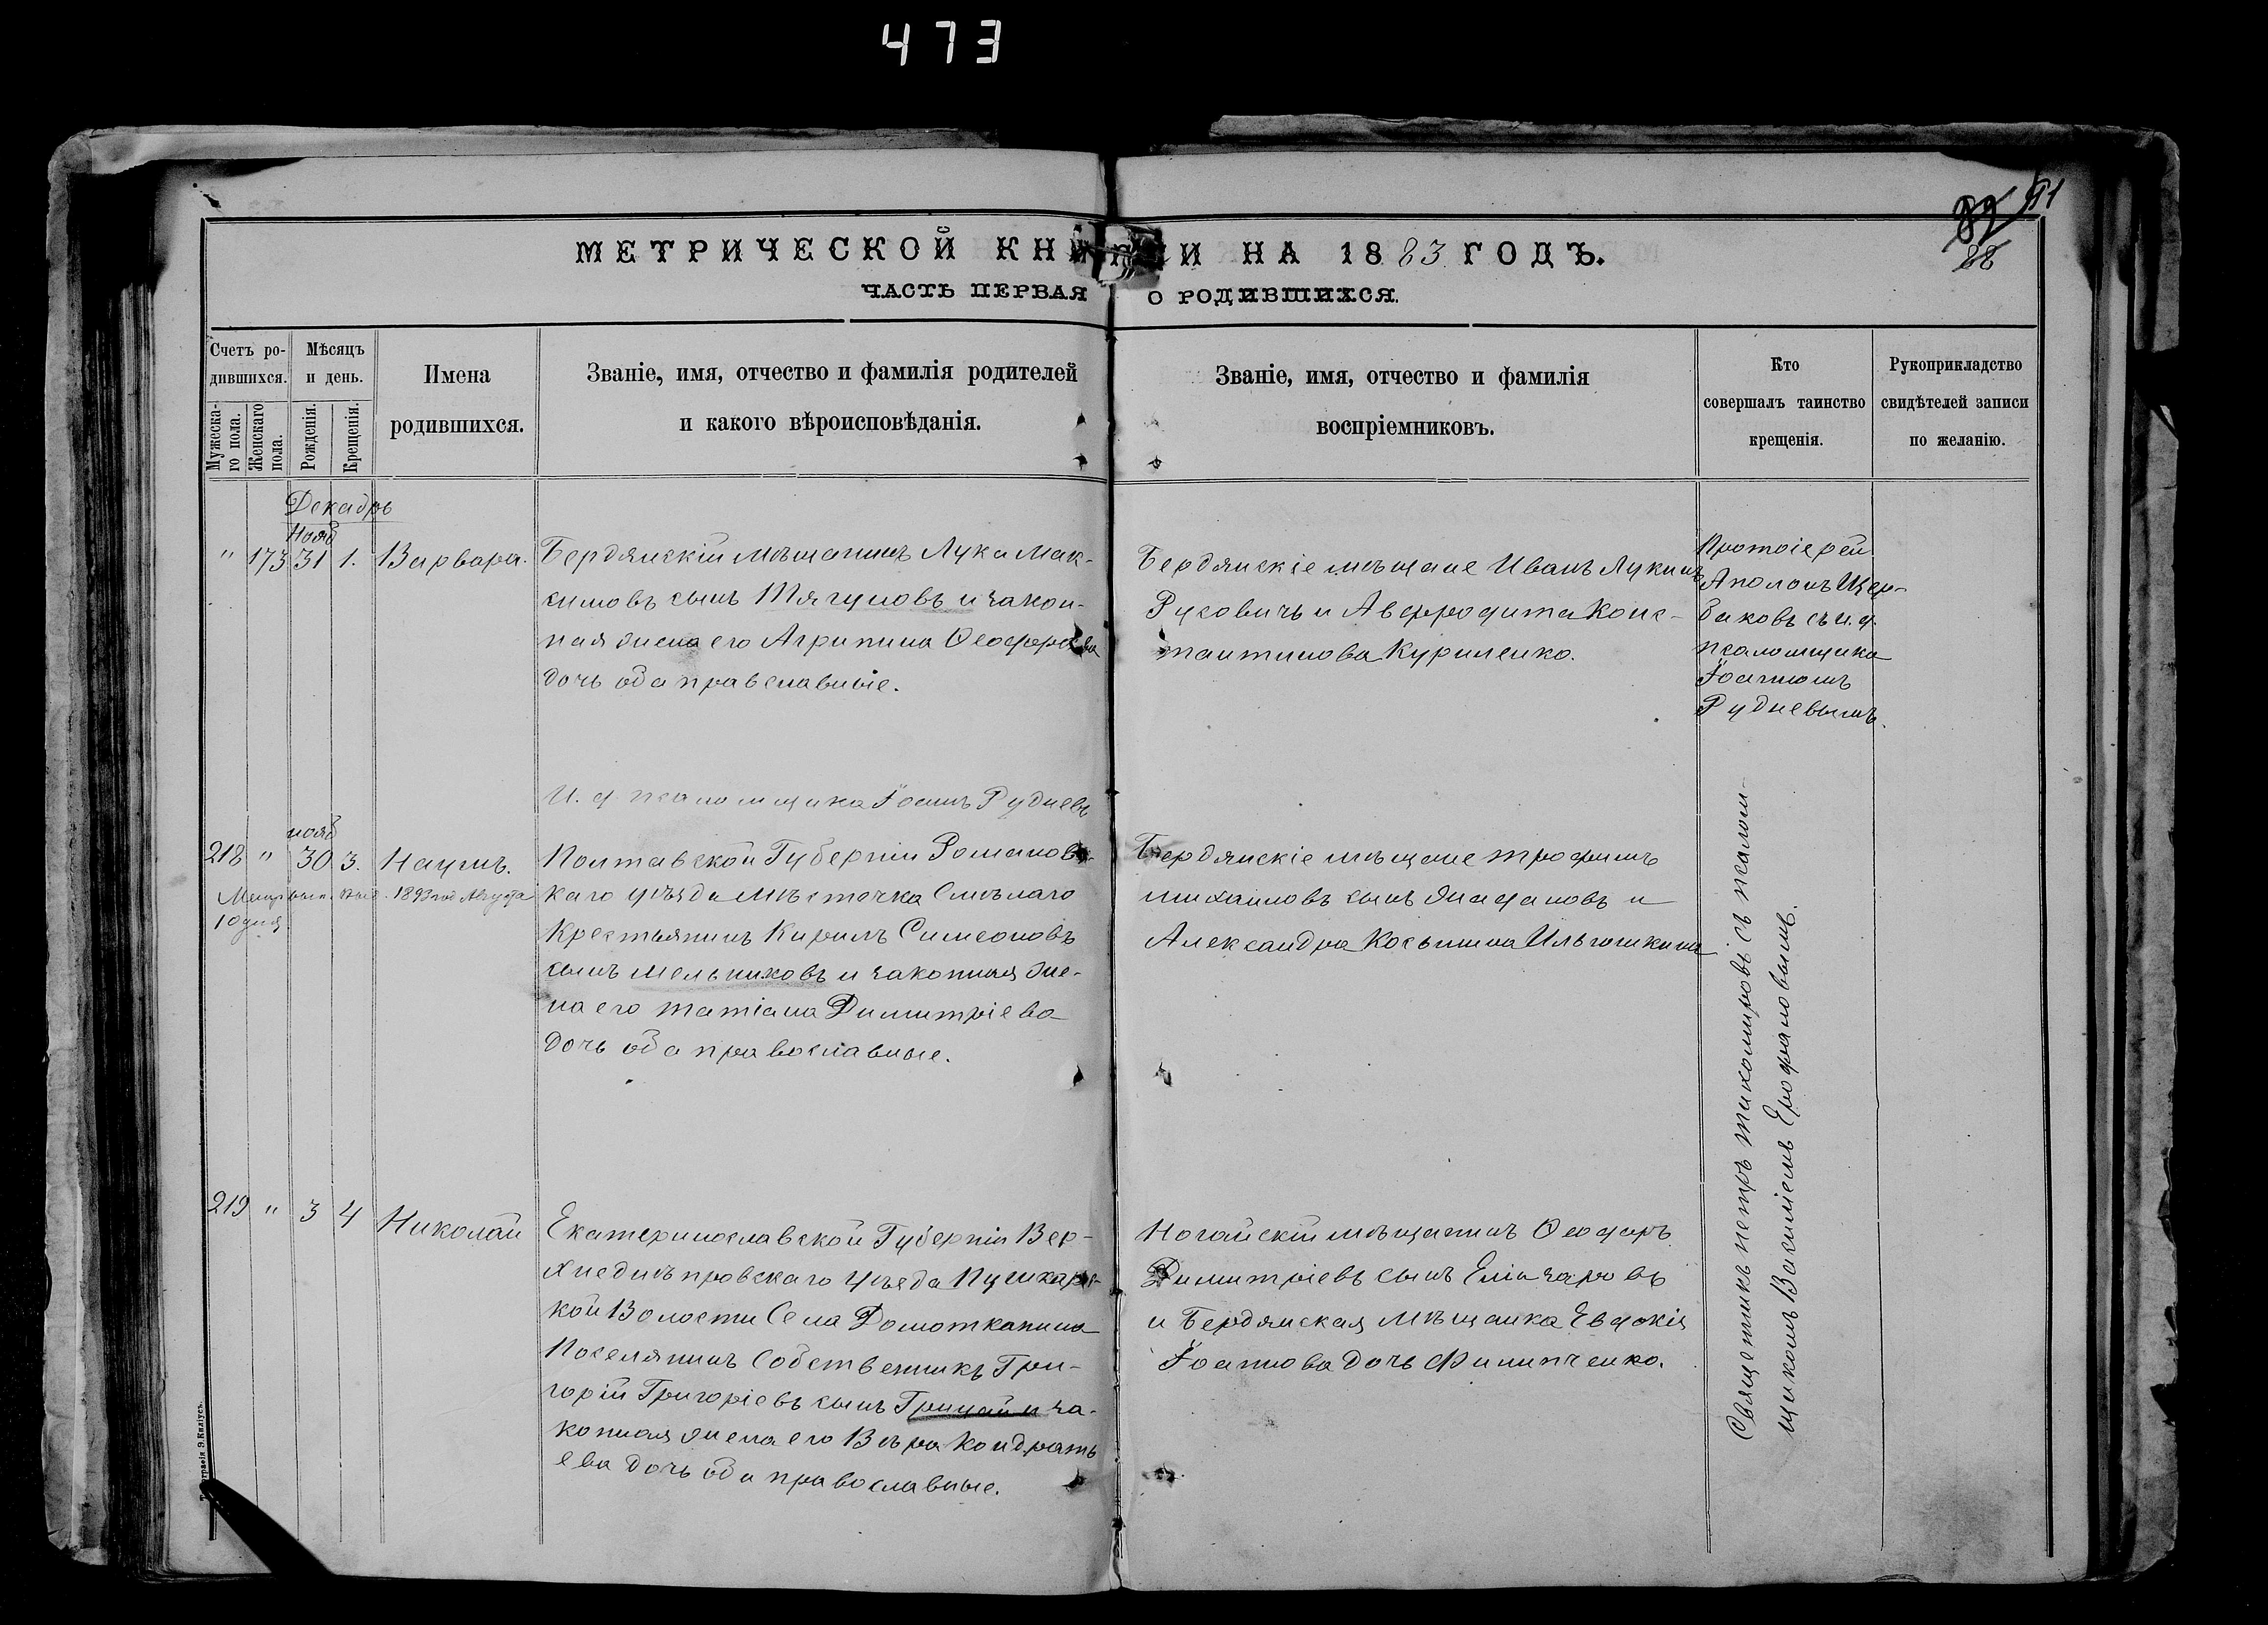 473
91
89
88
МЕТРИЧЕСКОЙ КНИГИ НА 1883 ГОДЪ.
ЧАСТЬ ПЕРВАЯ О РОДИВШИХСЯ.
Счетъ ро-
дившихся.
Мужеска-
го пола.
Женскаго
пола.
Мѣсяцъ
и день.
Рожденія.
Крещенія.
Имена
родившихся.
Званіе, имя, отчество и фамилія родителей
и какого вѣроисповѣданія.
Званіе, имя, отчество и фамилія
воспріемниковъ.
Кто
совершалъ таинство
крещенія.
Рукоприкладство
свидѣтелей записи
по желанію.
Декабрь
Нояб
" 173 31 1. Варвара.
Бердянскій мѣщанинъ Лука Мак-
симовъ сынъ Тягуновъ и закон-
ная жена его Агрипина Ѳеодорова
дочь оба православные.
Бердянскіе мѣщане Иванъ Лукинъ
Русовичъ и Афродита Конс-
тантинова Куриленко.
Протоіерей
Аполонъ Щер-
баковъ съ и. д.
псаломщика
Іоанномъ
Рудневымъ.
И. д. псаломщика Іоаннъ Рудневъ
нояб
218 " 30 3. Наумъ.
Метр. вып. выд. 1893 год Августа
10 дня
Полтавской Губерніи Романовс-
каго уѣзда мѣстечка Смѣлаго
Крестьянинъ Кирилъ Симеоновъ
сынъ Мельниковъ и законная же-
на его Татіана Димитріева
дочь оба православные.
Бердянскіе мѣщане Трофимъ
Михаиловъ сынъ Жадановъ и
Александра Косьмина Ильюшкина
219 " 3 4 Николай
Екатеринославской Губерніи Вер-
хнеднѣпровскаго Уѣзда Пушкарс-
кой Волости Села Домоткани
Поселянинъ Собственникъ Гри-
горій Григоріевъ сынъ Грицай и за-
конная жена его Вѣра Кондрать
ева дочь оба православные.
Ногайскій мѣщанинъ Ѳеодоръ
Димитріевъ сынъ Еліазаровъ
и Бердянская Мѣщанка Евдокія
Іоаннова дочь Филипченко.
Священникъ Петръ Тихомировъ съ псалом-
щикомъ Василіемъ Ерофаловымъ.